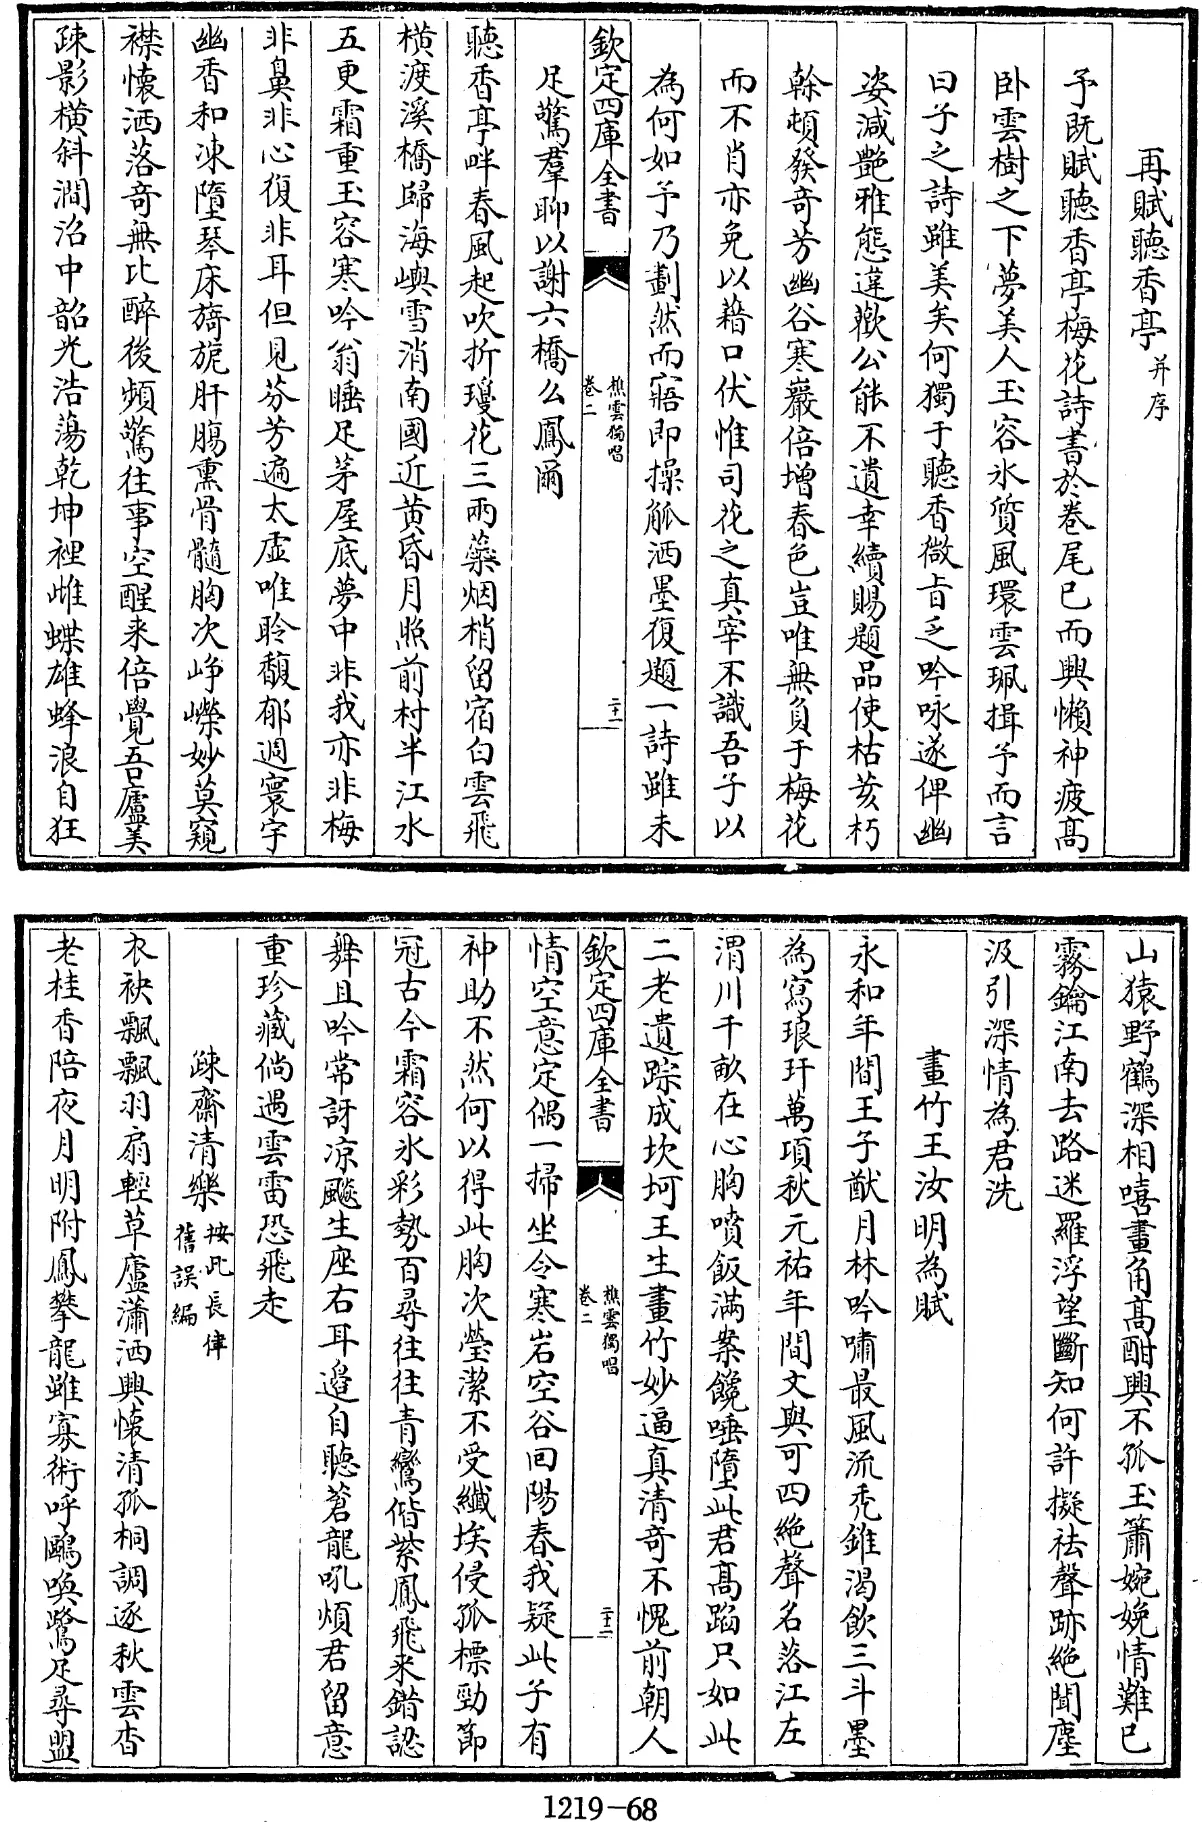 再賦聽香亭并序
予既賦聽香亭梅花詩書於卷尾已而興懶神疲高
卧雲樹之下夢美人玉容氷質風環雲珮揖予而言
曰子之詩雖美矣何獨于聽香微旨乏吟咏遂俾幽
姿減艷雅態違歡公能不遺幸續賜題品使枯荄朽
榦頓發奇芳幽谷寒巖倍增春色豈唯無負于梅花
而不肖亦免以藉口伏惟司花之真宰不識吾子以
為何如予乃劃然而寤即操觚洒墨復題一詩雖未
欽定四庫全書
樵雲獨唱
卷二
二十一
足驚羣聊以謝六橋么鳳爾
聽香亭畔春風起吹折瓊花三兩蘂烟梢留宿白雲飛
橫渡溪橋歸海嶼雪消南國近黃昏月照前村半江水
五更霜重玉容寒吟翁睡足茅屋底夢中非我亦非梅
非鼻非心復非耳但見芬芳遍太虛唯聆馥郁週寰宇
幽香和凍墮琴床旖旎肝腸熏骨髓胸次崢嶸妙莫窺
襟懷洒落奇無比醉後頻驚往事空醒来倍覺吾廬美
疎影橫斜澗沿中韶光浩蕩乾坤裡雌蝶雄蜂浪自狂
山猿野鶴深相嘻畫角高酣興不孤玉簫婉娩情難已
霧鑰江南去路迷羅浮望斷知何許擬袪聲跡絶聞塵
汲引深情為君洗
畫竹王汝明為賦
永和年間王子猷月林吟嘯最風流禿錐渴飲三斗墨
為寫琅玕萬項秋元祐年間文與可四絶聲名落江左
渭川千畝在心胸噴飯滿案饞唾墮此君髙蹈只如此
二老遺踪成坎坷王生畫竹妙逼真清奇不愧前朝人
欽定四庫全書
樵雲獨唱
卷二
二十二
情空意定偶一掃坐令寒岩空谷回陽春我疑此子有
神助不然何以得此胸次瑩潔不受纖埃侵孤標勁節
冠古今霜容氷彩勢百尋往往青鸞偕紫鳳飛来錯認
舞且吟常訝凉颷生座右耳邉自聽蒼龍吼煩君留意
重珍藏倘遇雲雷恐飛走
疎齋清樂按此長律舊誤編
衣袂飄飄羽扇輕草廬瀟洒興懷清孤桐調逐秋雲杳
老桂香陪夜月明附鳳攀龍雖寡術呼鷗喚鷺足尋盟
1219-68